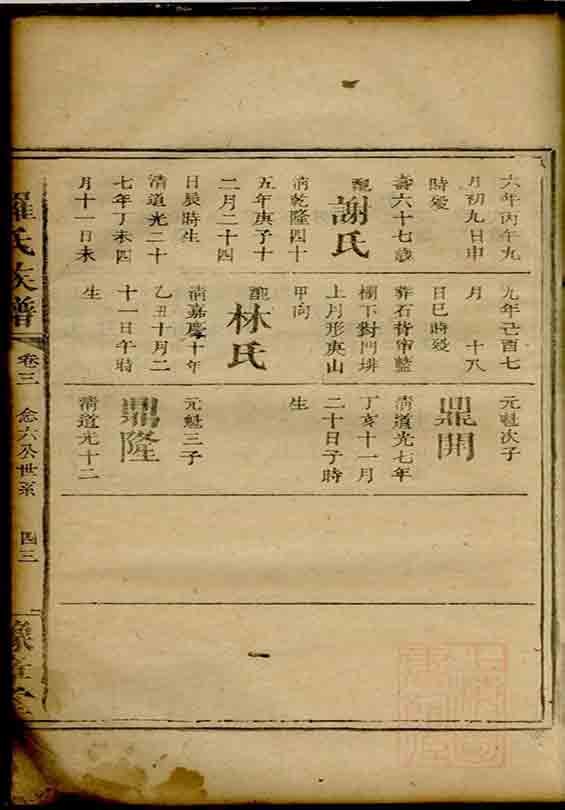 六年丙午九
月初九日申
時歿
壽六十七歲
配
謝氏
清乾隆四十
五年庚子十
二月二十四
日辰時生
清道光二十
七年丁未四
月十一日未
九年己酉七
月 十八
日巳時歿
葬石背
欄下對門
上月形庚山
甲向
配
林氏
清嘉慶十年
乙丑十月二
十一日午時
生
元魁次子
鼎開
清道光七年
丁亥十一月
二十日子時
生
元魁三子
鼎隆
清道光十二
羅氏族譜
卷三
念六公世系
四三
豫章堂